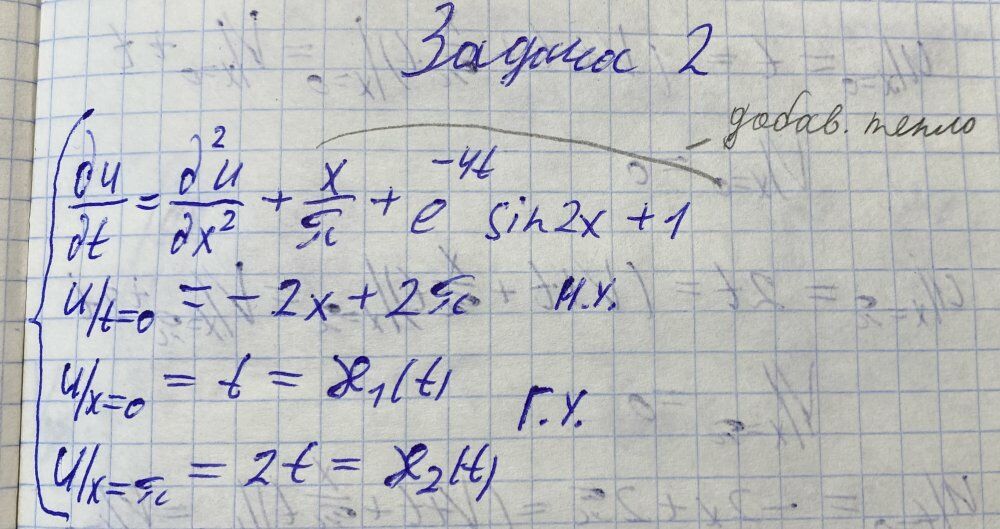 Задача 2
добав. тепло
∂u/∂t = ∂²u/∂x² + x/π + e^(-4t) sin2x + 1
u/t=0 = -2x + 2π н.у.
u/x=0 = t = ℋ₁(t)
Г.У.
u/x=π = 2t = ℋ₂(t)